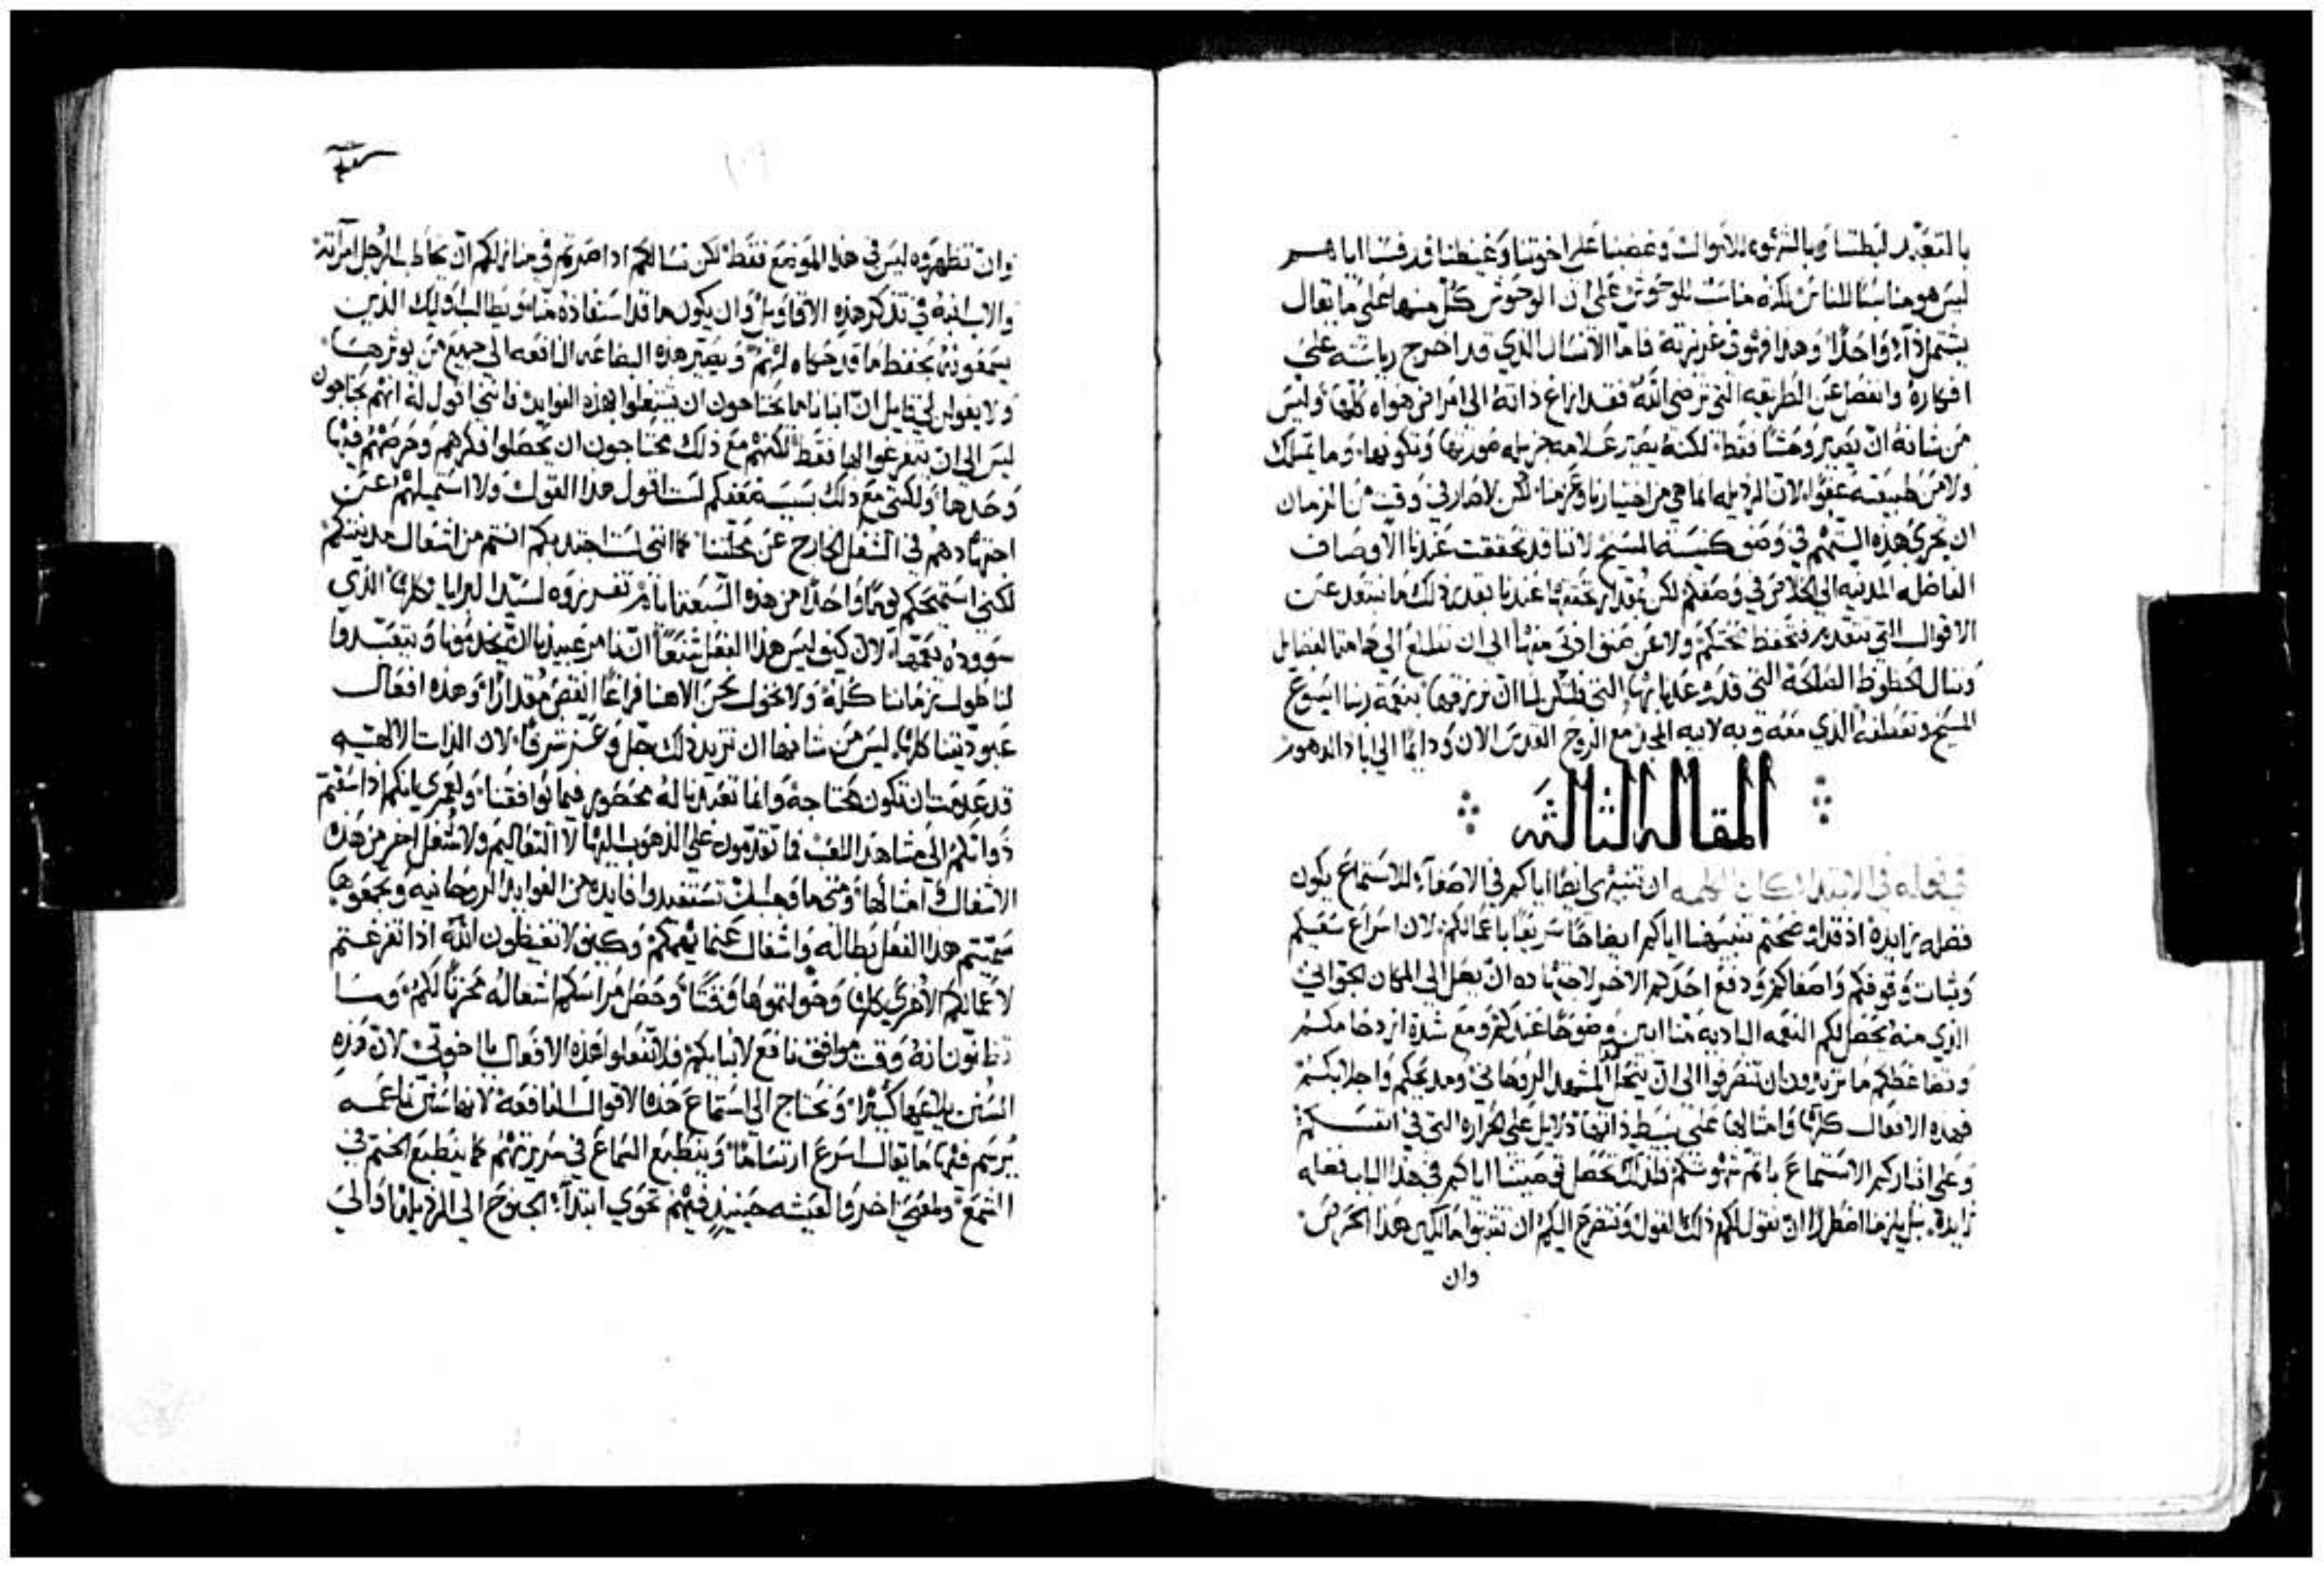 بالتعبد لبطننا وبالشهوه للاموال وغضبنا على اخوتنا وغيظنا قد فسا اياهم
ليس هو مناسبًا للناس لكنه مناسب للوحوش على ان الوحوش كل منها على ما يقال
يشتمل دآءً واحدًا وهذا فهو في غريزته فاما الانسان الذي قد اخرج رياسته على
افكاره وانفصل عن الطريقه التي ترضي الله فقد ازاغ ذاته الى امراض هواه كلها وليس
من شانه ان يصير وحشًا فقط لكنه يصير علامه جزيله صورتها وتكونها وما يمتلك
ولا من طبيعته عفوًا لان الرذيله انما هي من اختيارنا وعزمنا لكن لا صار في وقت من الزمان
ان تجري هذه التهم في وصف كنيسة المسيح لاننا قد تحققت عندنا الاوصاف
الفاضله المدنيه الى الخلاص في وصفكم لكن بمقدار تحققها عندنا بقدر ذلك ما نبتعد عن
الاقوال التي تتقدم فتحفظ صحتكم ولا عن صنف ادنى منها الى ان نطلع الى هامة الفضايل
وننال الحظوظ الصالحة التي قد وعدنا بها التي فليكن لنا ان نرزقها بنعمة ربنا ايسوع
المسيح وتعطفه الذي معه وبه لابيه المجد مع الروح القدس الان ودايمًا الى اباد الدهور
المقالة الثالثه
في قوله في الابتدا كان الكلمه ان تنبيهي ايضًا اياكم في الاصغآء للاستماع يكون
فضله زايدة اذ قد اوضحتم تنبيهنا اياكم ايضاحًا سريعًا باعمالكم لان اسراع سعيكم
وثبات وقوفكم واصغاكم ودفع احدكم الاخر لاجتهاده ان يصل الى المكان الجواني
الذي منه يحصل لكم النغمه الباديه منا ابين وضوحًا عندكم ومع شدة ازدحامكم
وتضاغطكم ما تريدون ان تنصرفوا الى ان ينحل المشهد الروحاني ومديحكم واجلابكم
فهذه الافعال كلها وامثالها على بسيط ذاتها دلايل على الحراره التي في انفسكم
وعلى ايثاركم الاستماع باتم شهوتكم فلذلك تحصل توصيتنا اياكم في هذا الباب فضله
زايدة بل يلزمنا اضطرارًا ان نقول لكم ذلك القول ونتضرع اليكم ان تثبتوا مالكين هذا الحرص
وان
وان تظهروه ليس في هذا الموضع فقط لكن نسالكم اذا صرتم في منازلكم ان يخاطب الرجل امرأته
والاب ابنه في تذكر هذه الاقاويل وان يكون ما قد استفاده منا ويطالب اوليك الذين
يسمعونه بحفظ ما قد حكاه لهم ويصير هذه البضاعه النافعه الى جميع من يوثرها
ولا يقولن لي قايل ان ابنانا ما يحتاجون ان يشتغلوا بهذه الفوايد فانني اقول له انهم يحتاجون
ليس الى ان يتفرغوا لها فقط لكنهم مع ذلك محتاجون ان يحصلوا فكرهم وحرصهم فيها
وحدها ولكني مع ذلك بسببه ضعفكم لست اقول هذا القول ولا استميلهم عن
اجتهادهم في الشغل الخارج عن محلتنا كما انني لست اجتذبكم انتم من اشغال مدينتكم
لكني استميحكم يومًا واحدًا من هذه السبعة ايام تفرزوه لسيد البرايا كلها الذي
سووده يعمها لان كيف ليس هذا الفعل شنعًا اننا نامر عبيدنا ان يخدمونا ويتعبدوا
لنا طول زماننا كله ولا نخول نحن الاهنا فراغًا انقص مقدارًا وهذه افعال
عبوديتنا كلها ليس من شانها ان تزيد ذلك جل وعز شرفًا لان الذات الالهيه
قد عدمت ان تكون محتاجة وانما تعبدنا له محصور فيما يوافقنا ولعمري انكم اذا سقتم
ذواتكم الى مشاهد اللعب فما تقدمون على الذهوب اليها لا التعاليم ولا شغل اخر من هذه
الاشغال وامثالها ومتى ما وجب ان تستفيدوا فايده من الفوايد الروحانيه وتجمعوها
سميتم هذا الفعل بطاله واشغال عنما يهمكم وكيف لا تغيظون الله اذا تفرغتم
لاعمالكم الاخرى كلها وخولتموها وقتًا وحصل مراسكم اشغاله محزنًا لكم وما
تظنون انه وقت موافق نافع لابنايكم فلا تفعلوا هذه الافعال يا اخوتي لان هذه
السنين يليق بها كثيرًا وتحتاج الى استماع هذه الاقوال النافعة لانها سنين ناعمه
يرسم فيها ما يقال اسرع ارتسامًا وينطبع السماع في سريرتهم كما ينطبع الختم في
الشمع ولمعنى اخر فالعيشه حينيذ فيهم تحوي ابتدآء الجنوح الى الرذيله او الى